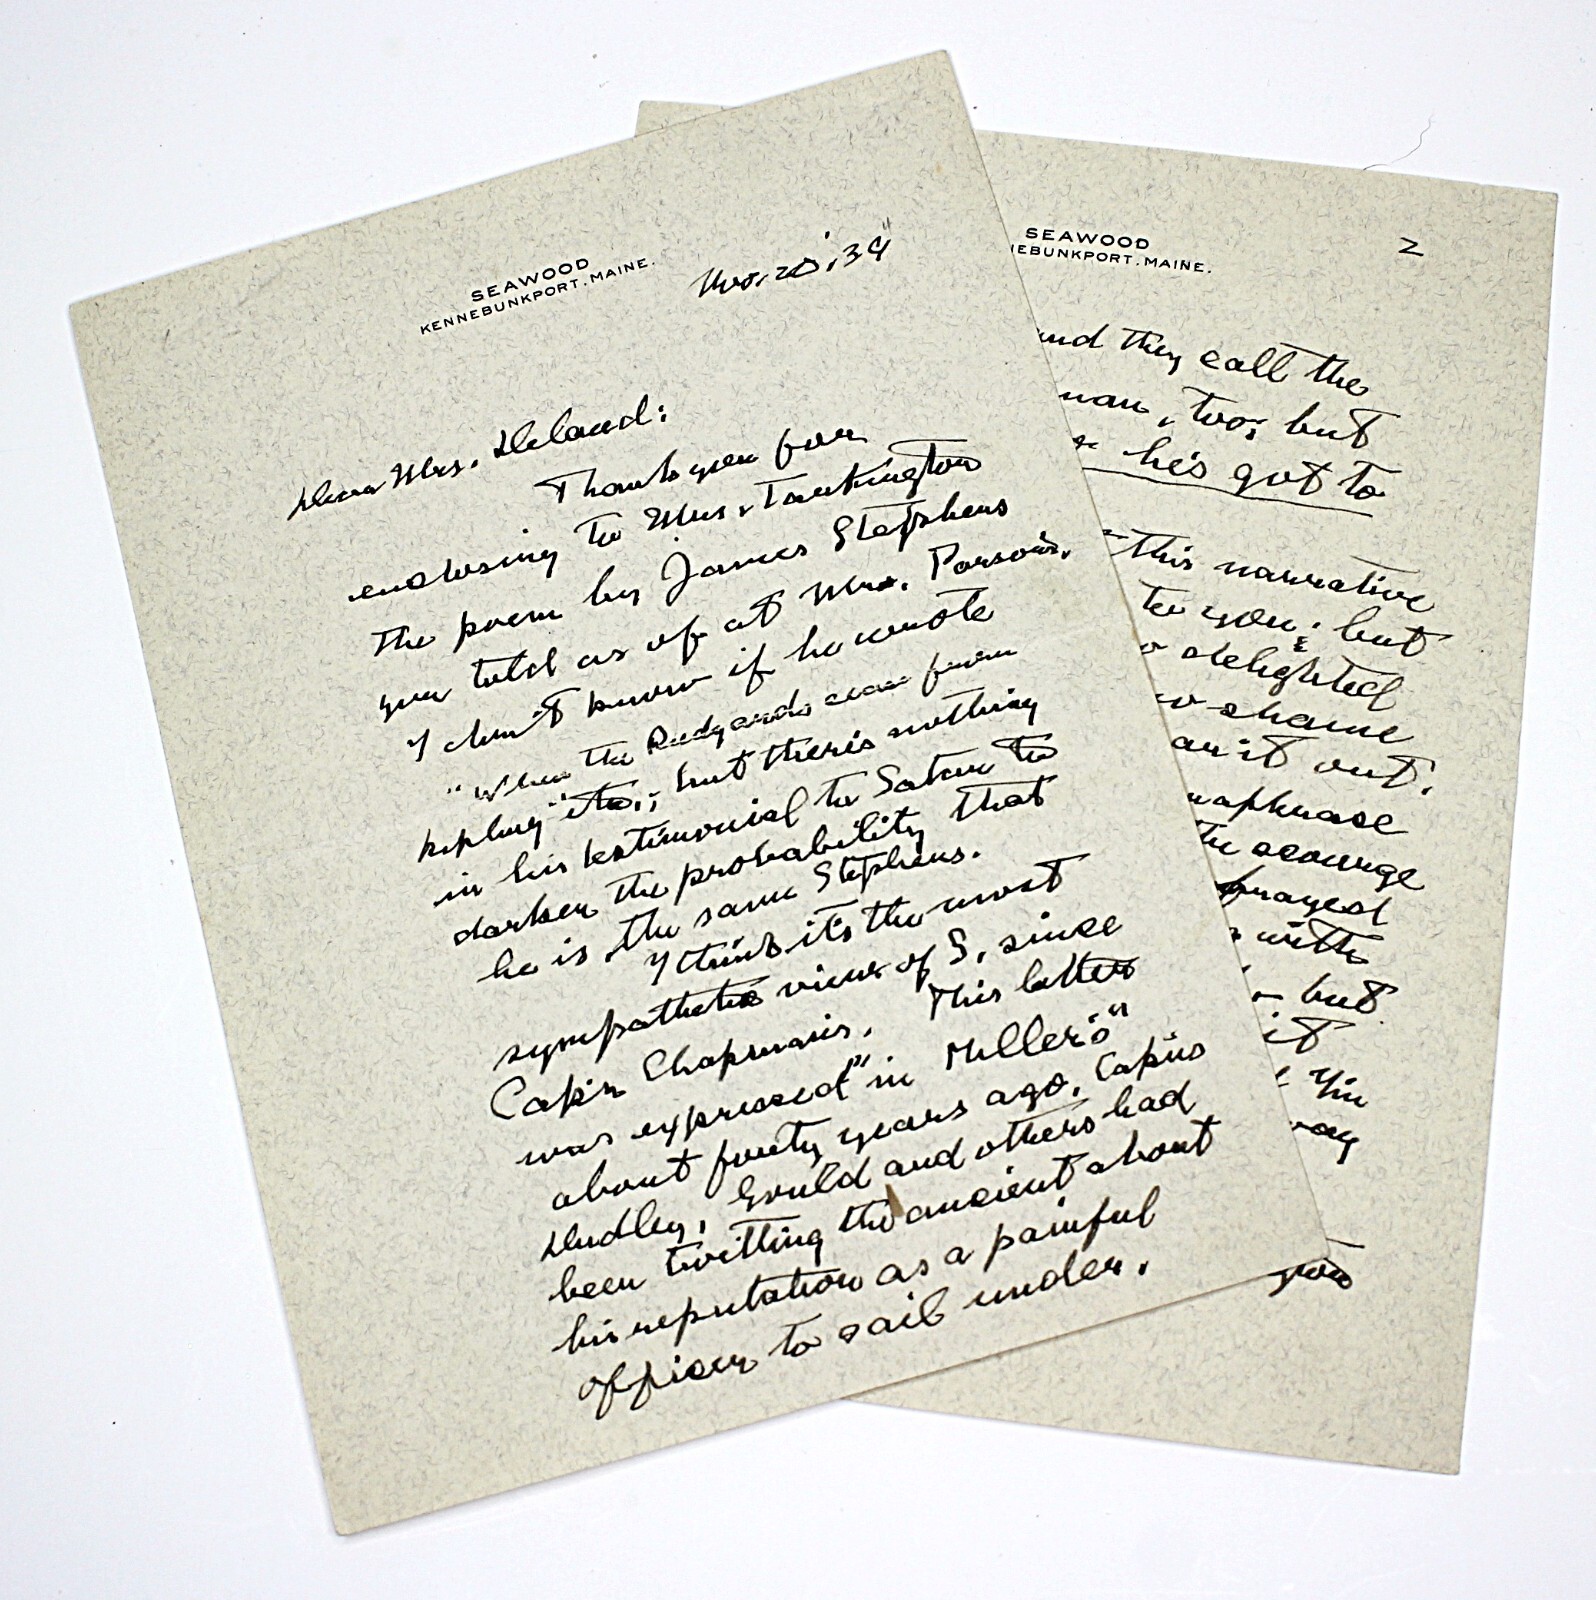 SEAWOOD
KENNEBUNKPORT. MAINE.
Nov. 20, '39
Dear Mrs. Deland:
Thank you for
enclosing to Mrs. Tarkington
the poem by James Stephens
you told us of at Mrs. Parsons.
I don't know if he wrote
"When the Rudyards cease from
kipling" etc., but there's nothing
in his testimonial to Satan to
darken the probability that
he is the same Stephens.
I think it's the most
sympathetic view of S. since
Cap'n Chapman's. This latter
was expressed in "Miller's"
about forty years ago. Cap'ns
Dudley, Gould and others had
been twitting the ancient about
his reputation as a painful
officer to sail under.
SEAWOOD
NEBUNKPORT. MAINE.
2
and they call the
man, too; but
he's got to
this narrative
to you; but
delighted
shame
out.
the scourge
prayed
with
but
it